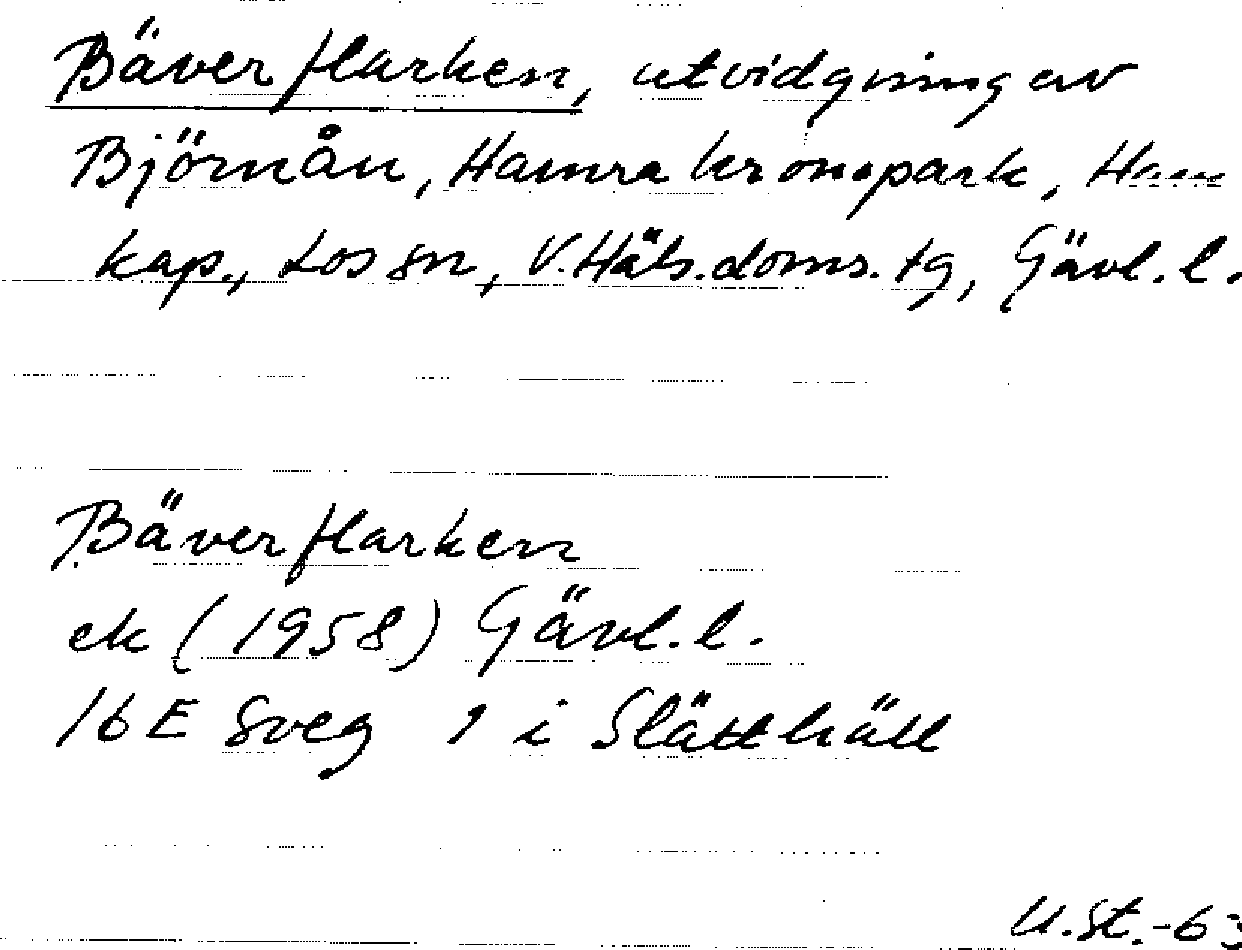 Bäverflarken, utvidgning av
Björnån, Hamra kronopark, Ham
kap., Los sn, V. Häls. doms. tg, Gävl. l.
Bäverflarken
ek (1958) Gävl. l.
16 E Sveg 1 i Slätthäll
U.St.-63